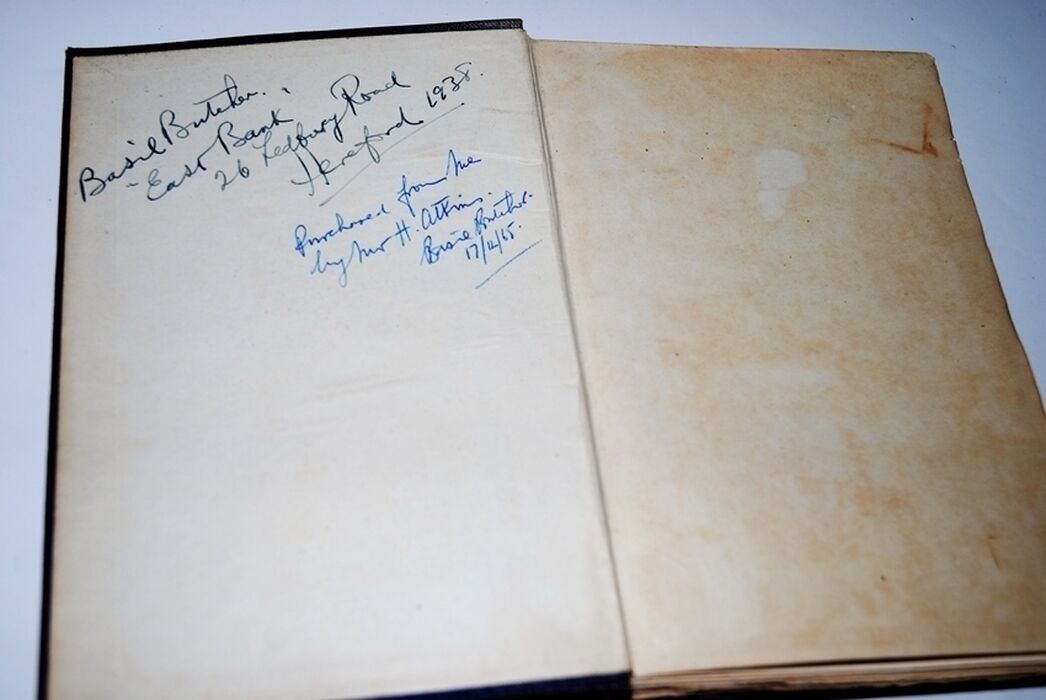 Basil Butcher.
"East Bank
26 Ledbury Road
Hereford. 1938.
Purchased from me
by Mr H. Atkins.
Basil Butcher.
17/12/65.